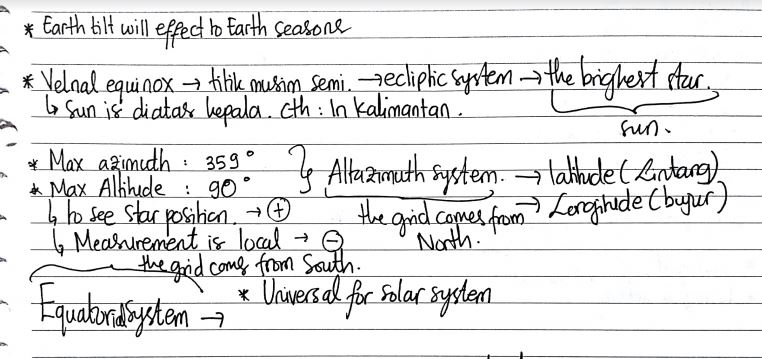 * Earth tilt will effect to Earth seasons
* Velnal equinox → titik musim semi. → ecliptic system → the brighest star.
↳ Sun is diatas kepala. Cth : In Kalimantan.
sun.
* Max azimuth : 359°
* Max Altitude : 90° } Altazimuth system. → latitude (Lintang)
↳ to see star position. → ⊕ the grid comes from → Longitude (bujur)
↳ Measurement is local → ⊖ North.
the grid come from South.
Equatorial system → * Universal for solar system